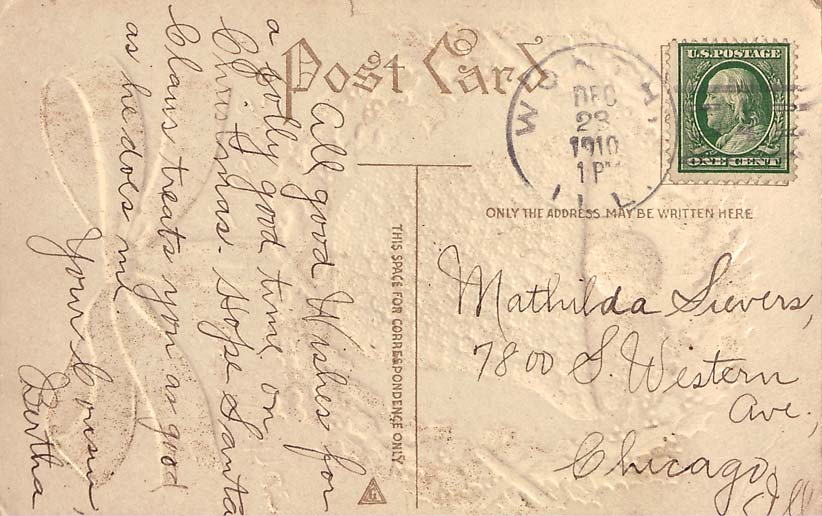 Post Card
WORTH,
DEC
23
1910
1 PM
ILL.
U.S. POSTAGE
ONE CENT
ONLY THE ADDRESS MAY BE WRITTEN HERE
THIS SPACE FOR CORRESPONDENCE ONLY
All good Wishes for
a jolly good time on
Christmas. Hope Santa
Claus treats you as good
as he does me.
Your Cousin,
Bertha
Mathilda Sievers,
7800 S. Western
Ave.,
Chicago,
Ill